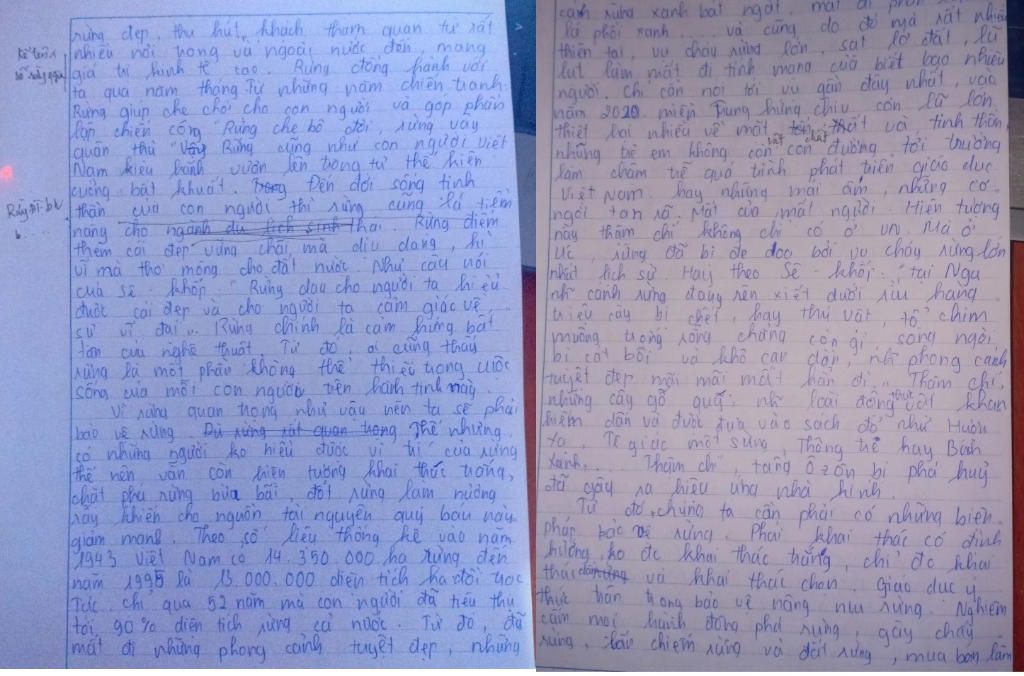 rừng đẹp, thu hút khách tham quan từ rất
nhiều nơi trong và ngoài nước đến, mang
giá trị kinh tế cao. Rừng đồng hành với
ta qua năm tháng. Từ những năm chiến tranh:
Rừng giúp che chở cho con người và góp phần
lập chiến công "Rừng che bộ đội, rừng vây
quân thù" Vậy Rừng cũng như con người Việt
Nam kiêu hãnh vươn lên trong tư thế hiên
cường bất khuất. Trong Đến đời sống tinh
thần của con người thì rừng cũng là tiềm
năng cho ngành du lịch sinh thái. Rừng điểm
thêm cái đẹp vững chãi mà dịu dàng, kì
vĩ mà thơ mộng cho đất nước. Như câu nói
của Sê-khốp: "Rừng dạy cho người ta hiểu
được cái đẹp và cho người ta cảm giác về
sự vĩ đại". Rừng chính là cảm hứng bất
tận của nghệ thuật. Từ đó, ai cũng thấy
rừng là một phần không thể thiếu trong cuộc
sống của mỗi con người trên hành tinh này.
Vì rừng quan trọng như vậy nên ta sẽ phải
bảo vệ rừng. Dù rừng rất quan trọng Thế nhưng
có những người ko hiểu được vị trí của rừng
thế nên vẫn còn hiện tượng khai thác trộng,
chặt phá rừng bừa bãi, đốt rừng làm nương
rẫy khiến cho nguồn tài nguyên quý báu này
giảm mạnh. Theo số liệu thống kê vào năm
1943 Việt Nam có 14.350.000 ha rừng đến
năm 1995 là 13.000.000 diện tích ha đồi trọc
Tức chỉ qua 52 năm mà con người đã tiêu thụ
tới 90% diện tích rừng cả nước. Từ đó, đã
mất đi những phong cảnh tuyệt đẹp, những
cánh rừng xanh bát ngát, mất đi
lá phổi xanh... và cũng do đó mà rất nhiều
thiên tai, vụ cháy rừng lớn, sạt lở đất, lũ
lụt làm mất đi tính mạng của biết bao nhiêu
người. Chỉ cần nói tới vụ gần đây nhất, vào
năm 2020 miền Trung hứng chịu cơn lũ lớn
thiệt hại nhiều về mặt vật chất và tinh thần
những trẻ em không còn con đường tới trường
làm chậm trễ quá trình phát triển giáo dục
Việt Nam. hay những mái ấm những cơ
ngơi tan rã. Mất của mất người. Hiện tượng
này thậm chí không chỉ có ở VN. Mà ở
Úc, rừng đã bị đe dọa bởi vụ cháy rừng lớn
nhất lịch sử. Hay theo Sê-khốp: "tại Nga
nh~ cánh rừng đang rên xiết dưới rìu hàng
triệu cây bị chết, hay thú vật, tổ chim
muông trống rỗng chẳng còn gì, sông ngòi
bị cát bồi và khô cạn dần, nh~ phong cảnh
tuyệt đẹp mãi mãi mất hẳn đi". Thậm chí,
những cây gỗ quý, nh~ loài động thực vật khan
hiếm dần và được đưa vào sách đỏ như Hươu
xạ, Tê giác một sừng, Thông tre hay Bách
xanh... Thậm chí, tầng Ôzôn bị phá huỷ
đã gây ra hiệu ứng nhà kính.
Từ đó, chúng ta cần phải có những biện
pháp bảo vệ rừng. Phải khai thác có định
hướng, ko đc khai thác trắng, chỉ đc khai
thác và khai thác chọn. Giáo dục ý
thức trân trọng bảo vệ nâng niu rừng. Nghiêm
cấm mọi hành động phá rừng, gây cháy
rừng, lấn chiếm rừng và đất rừng, mua bán lâm